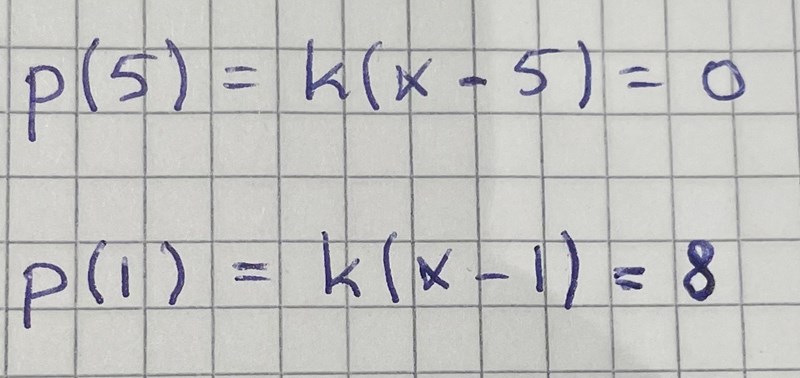 p(5) = k(x - 5) = 0
p(1) = k(x - 1) = 8